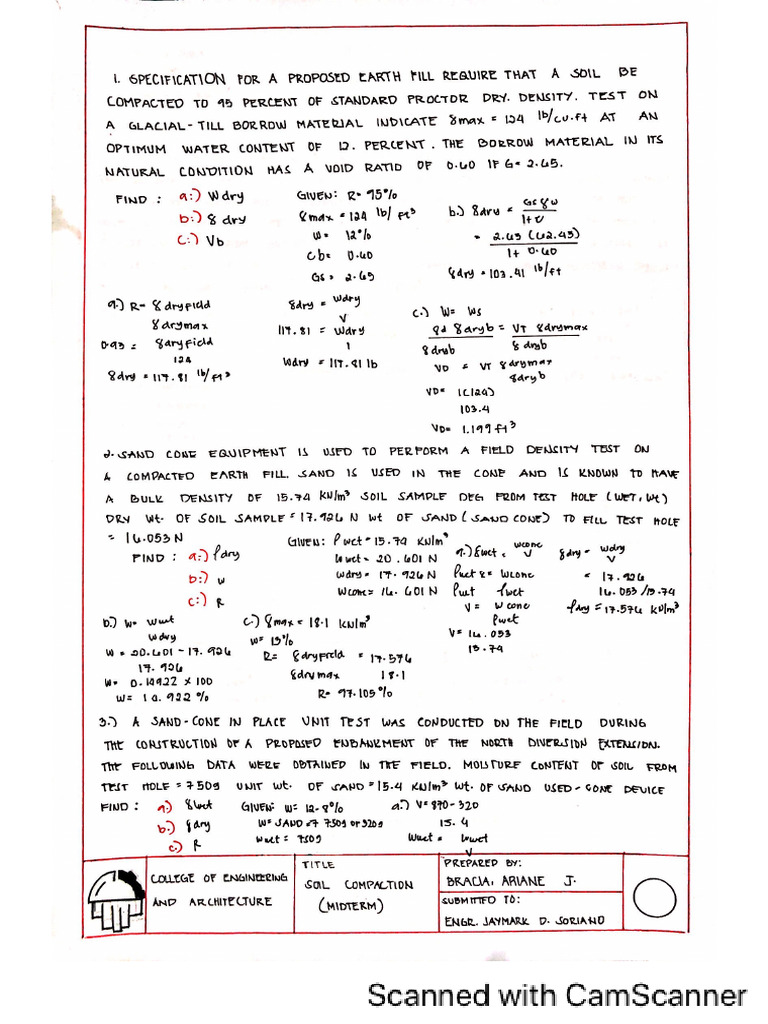 1. SPECIFICATION FOR A PROPOSED EARTH FILL REQUIRE THAT A SOIL BE
COMPACTED TO 95 PERCENT OF STANDARD PROCTOR DRY. DENSITY. TEST ON
A GLACIAL-TILL BORROW MATERIAL INDICATE 8max = 124 lb/cu.ft AT AN
OPTIMUM WATER CONTENT OF 12. PERCENT. THE BORROW MATERIAL IN ITS
NATURAL CONDITION HAS A VOID RATIO OF 0.60 IF G= 2.65.
FIND : a:) Wdry
b:) 8 dry
c:) Vb
GIVEN: R= 95%
8max = 124 lb/ft³
W= 12%
Cb= 0.60
Gs= 2.65
b.) 8dry = Gs 8w
1+e
= 2.65 (62.43)
1+ 0.60
8dry = 103.41 lb/ft
a.) R= 8dryfield
8drymax
0.95 = 8dryfield
124
8dry = 117.81 lb/ft³
8dry = Wdry
V
117.81 = Wdry
1
Wdry = 117.81 lb
c.) W= Ws
8dryb = VT 8drymax
8dryb 8dryb
VD = VT 8drymax
8dryb
VD= 1(124)
103.4
VD= 1.199 ft³
2. SAND CONE EQUIPMENT IS USED TO PERFORM A FIELD DENSITY TEST ON
A COMPACTED EARTH FILL. SAND IS USED IN THE CONE AND IS KNOWN TO HAVE
A BULK DENSITY OF 15.74 KN/m³ SOIL SAMPLE DEG FROM TEST HOLE (WET, Wt)
DRY Wt. OF SOIL SAMPLE = 17.926 N Wt OF SAND (SAND CONE) TO FILL TEST HOLE
= 16.053 N
FIND : a:) ρdry
b:) W
c:) R
GIVEN: ρwet = 15.74 KN/m³
Wwet = 20.601 N
Wdry = 17.926 N
Wcone = 16.601 N
a.) 8wet = Wcone
V
ρwet = Wcone
ρwet ρwet
V = Wcone
ρwet
V = 16.053
15.74
8dry = Wdry
V
= 17.926
16.053/15.74
ρdry = 17.576 KN/m³
b.) W= Wwet
Wdry
W = 20.601 - 17.926
17.926
W= 0.14922 X 100
W= 14.922 %
c.) 8max = 18.1 KN/m³
W= 13%
R= 8dryfield = 17.576
8drymax 18.1
R= 97.105%
3.) A SAND-CONE IN PLACE UNIT TEST WAS CONDUCTED ON THE FIELD DURING
THE CONSTRUCTION OF A PROPOSED ENBANKMENT OF THE NORTH DIVERSION EXTENSION.
THE FOLLOWING DATA WERE OBTAINED IN THE FIELD. MOISTURE CONTENT OF SOIL FROM
TEST HOLE = 750g UNIT Wt. OF SAND = 15.4 KN/m³ Wt. OF SAND USED - CONE DEVICE
FIND : a:) 8wet
b.) 8dry
c.) R
GIVEN: W= 12.8%
W= SAND = 750g or 320g
Wwet = 750g
a.) V= 870-320
15.4
Wwet = Wwet
V
COLLEGE OF ENGINEERING
AND ARCHITECTURE
TITLE
SOIL COMPACTION
(MIDTERM)
PREPARED BY:
BRACIA, ARIANE J.
SUBMITTED TO:
ENGR. JAYMARK D. SORIANO
Scanned with CamScanner